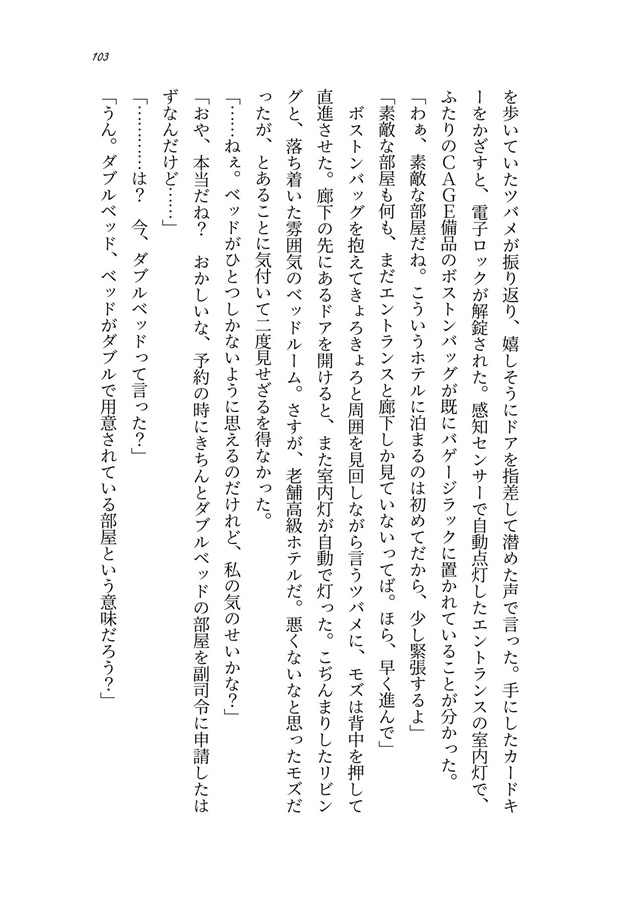 103
を歩いていたツバメが振り返り、嬉しそうにドアを指差して潜めた声で言った。手にしたカードキ
ーをかざすと、電子ロックが解錠された。感知センサーで自動点灯したエントランスの室内灯で、
ふたりのＣＡＧＥ備品のボストンバッグが既にバゲージラックに置かれていることが分かった。
「わぁ、素敵な部屋だね。こういうホテルに泊まるのは初めてだから、少し緊張するよ」
「素敵な部屋も何も、まだエントランスと廊下しか見ていないってば。ほら、早く進んで」
　ボストンバッグを抱えてきょろきょろと周囲を見回しながら言うツバメに、モズは背中を押して
直進させた。廊下の先にあるドアを開けると、また室内灯が自動で灯った。こぢんまりしたリビン
グと、落ち着いた雰囲気のベッドルーム。さすが、老舗高級ホテルだ。悪くないなと思ったモズだ
ったが、とあることに気付いて二度見せざるを得なかった。
「……ねぇ。ベッドがひとつしかないように思えるのだけれど、私の気のせいかな？」
「おや、本当だね？　おかしいな、予約の時にきちんとダブルベッドの部屋を副司令に申請したは
ずなんだけど……」
「…………は？　今、ダブルベッドって言った？」
「うん。ダブルベッド、ベッドがダブルで用意されている部屋という意味だろう？」